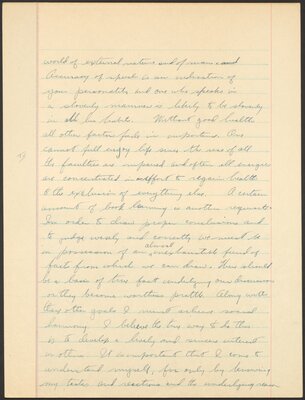 world of external nature and of man and
Accuracy of speech is an indication of
your personality and one who speaks in
a slovenly manner is likely to be slovenly
in all his habits. Without good health
all other factors fade in importance. One
cannot fully enjoy life since the uses of all
the faculties are impaired and often all energies
are concentrated in effort to regain health
to the exclusion of everything else. A certain
amount of book learning is another requisite.
In order to draw proper conclusions and
to judge wisely and correctly we must be
in possession of an almost inexhaustible fund of
facts from which we can draw. There should
be a basis of true fact underlying our discussion
or they become worthless prattle. Along with
these other goals I must achieve social
harmony. I believe the true way to do this
is to develop a lively and sincere interest
in others. It is important that I come to
understand myself, for only by knowing
my tastes and reactions and the underlying reason